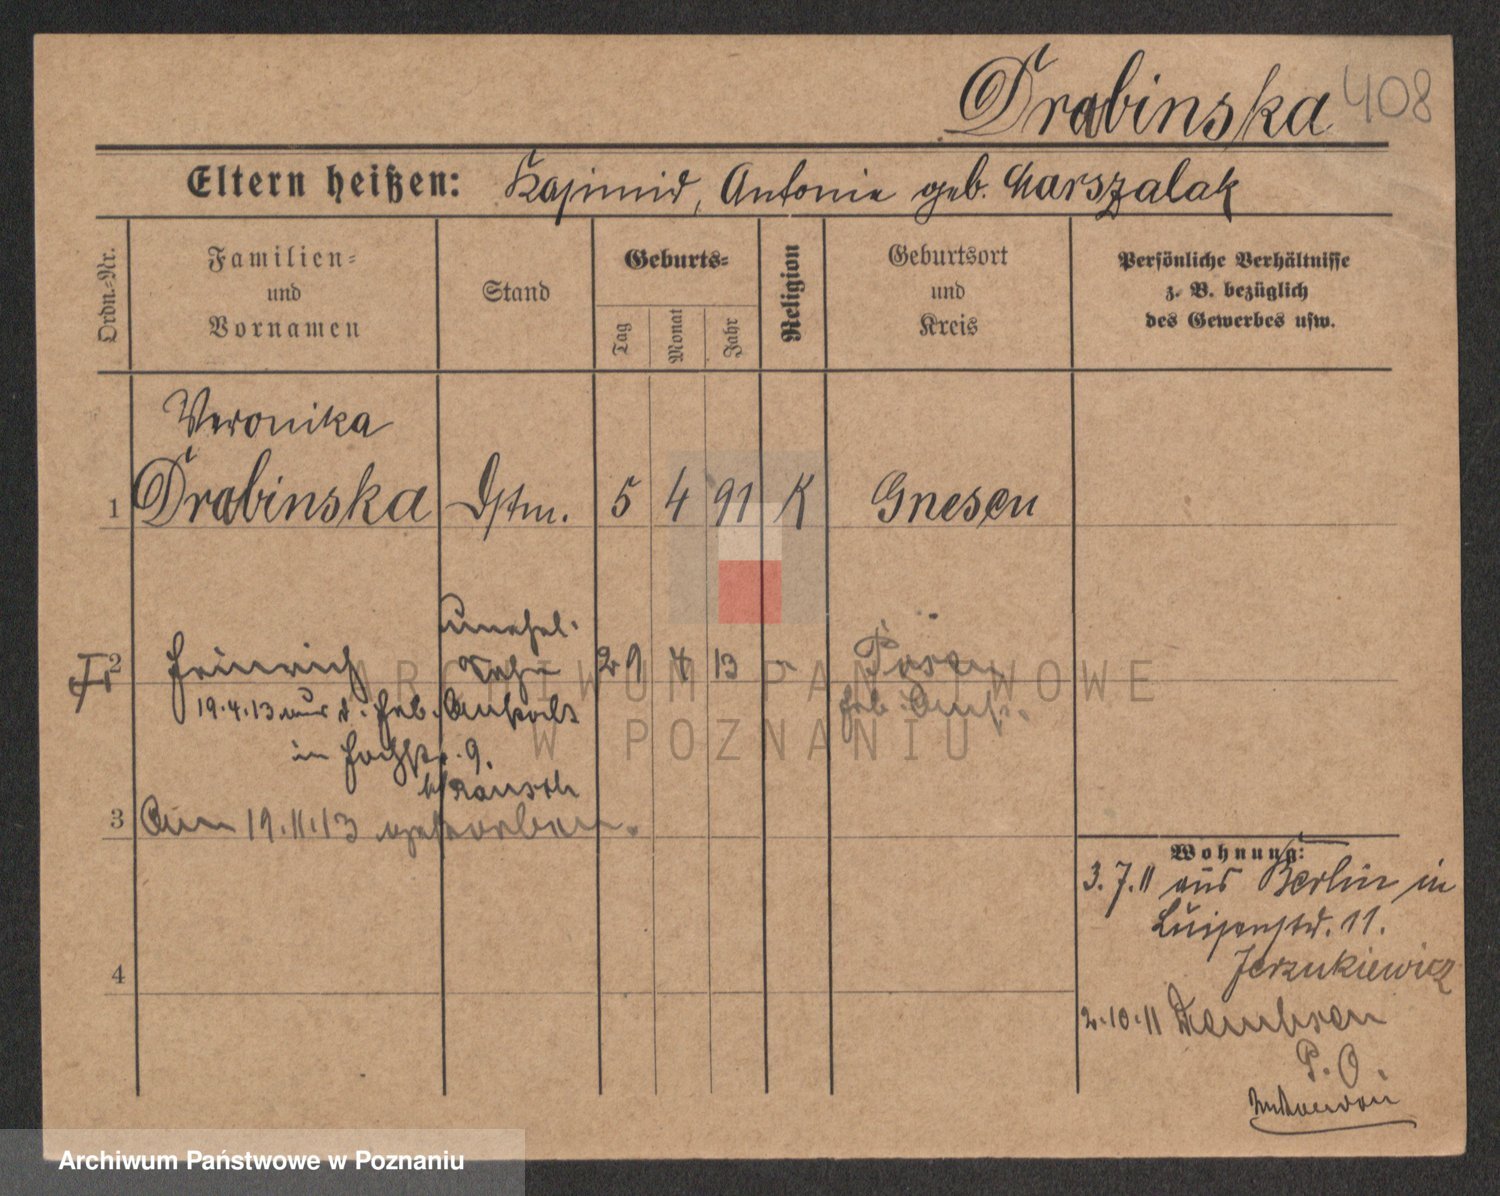 Drabinska 408
Eltern heißen: Kasimir, Antonie geb. Marszalak
Ordn.-Nr.
Familien-
und
Vornamen
Stand
Geburts-
Tag
Monat
Jahr
Religion
Geburtsort
und
Kreis
Persönliche Verhältnisse
z. B. bezüglich
des Gewerbes usw.
Veronika
1 Drabinska Dstm. 5 4 91 K Gnesen
unehel.
2 Heinrich Sohn 4 13 Posen
19.4.13 aus d. Heb. Anstalt geb. Anst.
in
3 Am 19.11.13 gestorben.
4
Wohnung:
3.7.11 aus Berlin in
Luisenstr. 11.
Jerzykiewicz
2.10.11
P. O.
ARCHIWUM PAŃSTWOWE
W POZNANIU
Archiwum Państwowe w Poznaniu